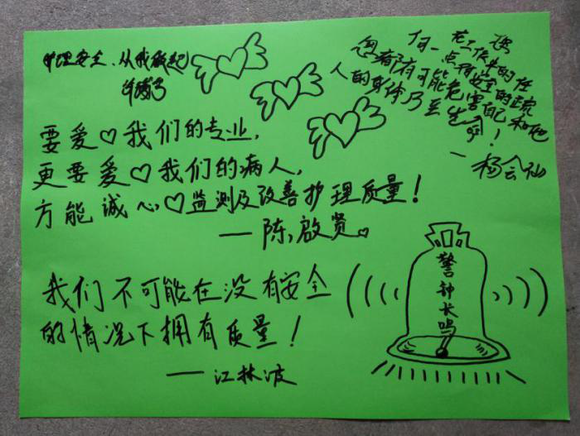 护理安全,从我做起
在工作中的任
何一点稍微的疏
忽都有可能危害自己和他
人的身体乃至生命!
—杨会仙
要爱♡我们的专业,
更要爱♡我们的病人,
方能诚心♡监测及改善护理质量!
—陈启贤。
我们不可能在没有安全
的情况下拥有质量!
—江林波
警钟长鸣